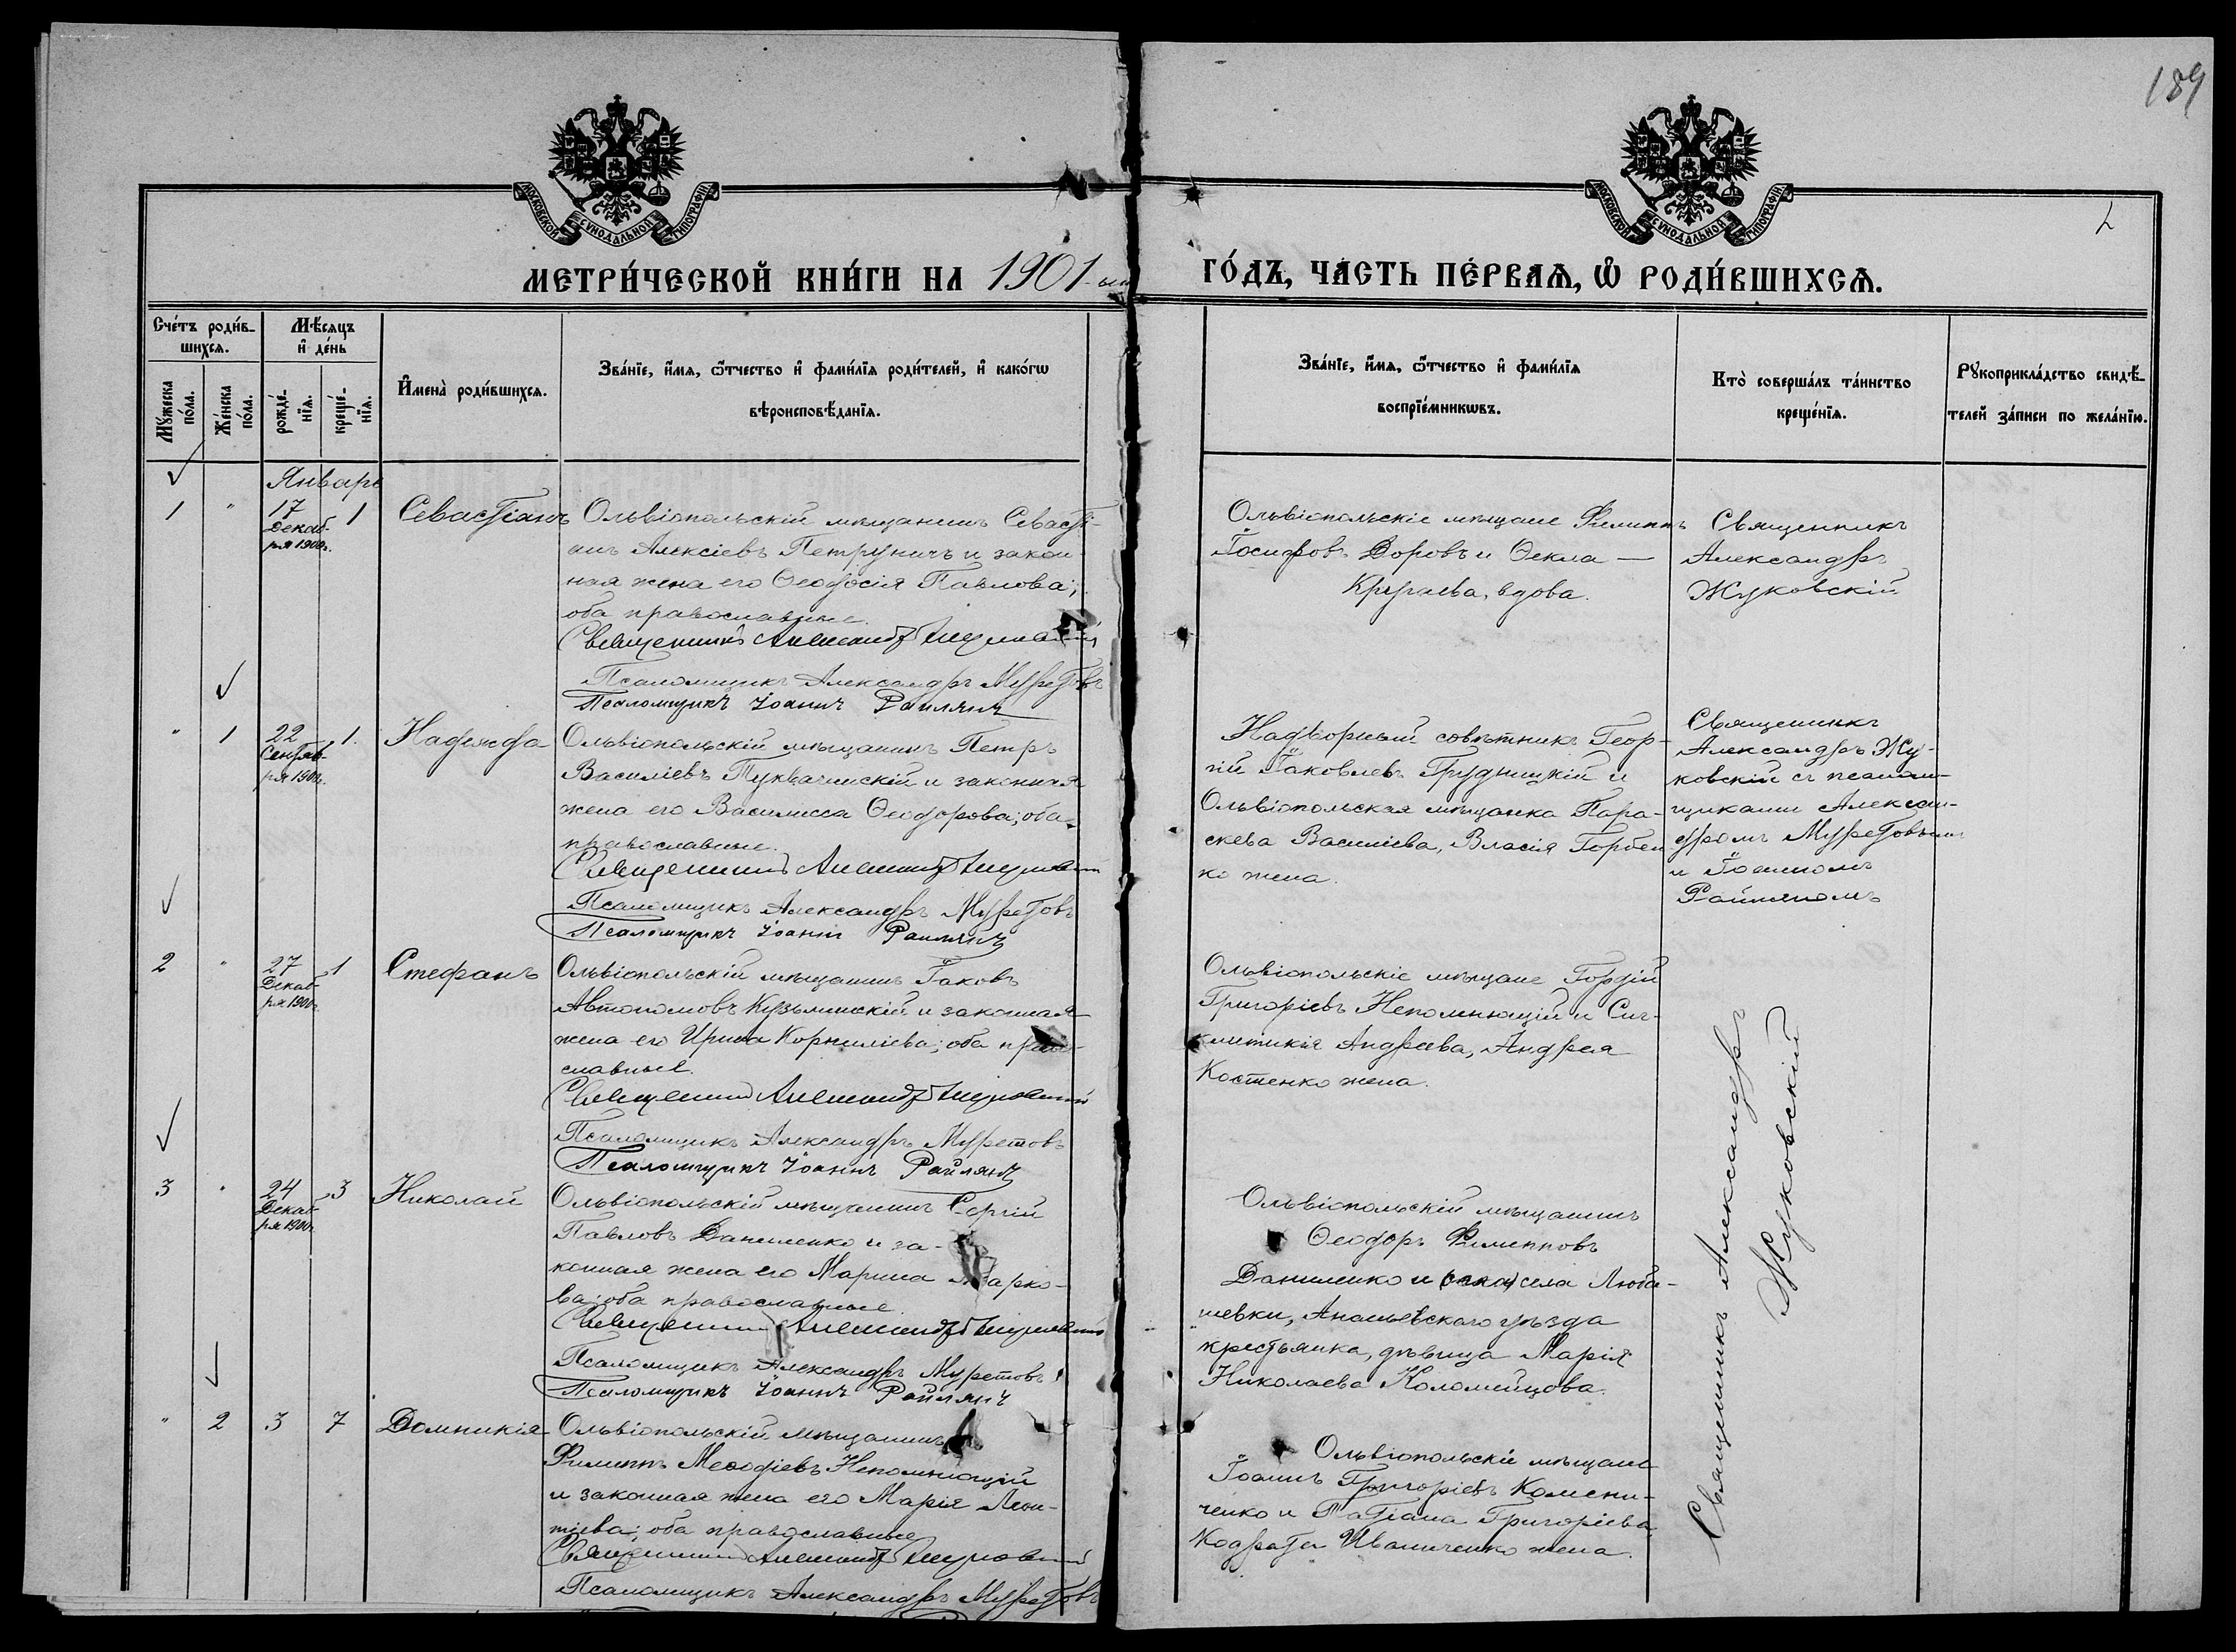 189
МОСКОВСКОЙ СѴНОДАЛЬНОЙ ТИПОГРАФІИ
МОСКОВСКОЙ СѴНОДАЛЬНОЙ ТИПОГРАФІИ
МЕТРИ́ЧЕСКОЙ КНИ́ГИ НА 1901-ый ГО́ДЪ, ЧА́СТЬ ПЕ́РВАѦ, Ѡ҆ РОДИ́ВШИХСѦ.
Сче́тъ роди́в-
шихсѧ.
Мѹжеска по́ла.
Же́нска по́ла.
Мѣ́сѧцъ и҆ де́нь
рожде́-нїѧ.
креще́-нїѧ.
И҆мена̀ роди́вшихсѧ.
Зва́нїе, и҆́мѧ, ѻ҆́тчество и҆ фами́лїѧ роди́телей, и҆ како́гѡ
вѣроисповѣ́данїѧ.
Зва́нїе, и҆́мѧ, ѻ҆́тчество и҆ фами́лїѧ
воспрїе́мникѡвъ.
Кто̀ соверша́лъ та́инство
креще́нїѧ.
Рѹкоприкла́дство свидѣ́-
телей за́писи по жела́нїю.
Январь
1 " 17 1 Севастіанъ
Декаб-
ря 1900г.
Ольвіопольскій мѣщанинъ Севасті-
анъ Алексіевъ Петруничъ и закон-
ная жена его Ѳеодосія Павлова;
оба православные.
Священникъ Александръ Жуковскій
Псаломщикъ Александръ Муретовъ
Псаломщикъ Іоаннъ Райлянъ
Ольвіопольскіе мѣщане Филиппъ
Іосифовъ Доровъ и Ѳекла —
вдова.
Священникъ
Александръ
Жуковскій
" 1 22 1. Надежда
Сентяб-
ря 1900г.
Ольвіопольскій мѣщанинъ Петръ
Василіевъ и законная
жена его Василисса Ѳеодорова; оба
православные.
Священникъ Александръ Жуковскій
Псаломщикъ Александръ Муретовъ
Псаломщикъ Іоаннъ Райлянъ
Надворный совѣтникъ Геор-
гій Іаковлевъ Грудницкій и
Ольвіопольская мѣщанка Пара-
скева Василіева, Власія Горбен
ко жена.
Священникъ
Александръ Жу-
ковскій съ псалом-
щиками Алексан-
дромъ Муретовымъ
и Іоанномъ
Райляномъ
2 " 27 1 Стефанъ
Декаб-
ря 1900г.
Ольвіопольскій мѣщанинъ Іаковъ
Автономовъ Кузьминскій и законная
жена его Ирина Корниліева; оба право-
славные.
Священникъ Александръ Жуковскій
Псаломщикъ Александръ Муретовъ
Псаломщикъ Іоаннъ Райлянъ
Ольвіопольскіе мѣщане Гордій
Григоріевъ Непомнющій и Син-
клитикія Андреева, Андрея
Костенко жена.
3 " 24 3 Николай
Декаб-
ря 1900г.
Ольвіопольскій мѣщанинъ Сергій
Павловъ Даниленко и за-
конная жена его Марина Марко-
ва; оба православные.
Священникъ Александръ Жуковскій
Псаломщикъ Александръ Муретовъ
Псаломщикъ Іоаннъ Райлянъ
Ольвіопольскій мѣщанинъ
Ѳеодоръ Филипповъ
Даниленко и села Люба-
шевки, Ананьевскаго уѣзда
крестьянка, дѣвица Марія
Николаева Коломейцова.
" 2 3 7 Домникія
Ольвіопольскій мѣщанинъ
Филиппъ Меѳодіевъ Непомнющій
и законная жена его Марія Леон-
тіева; оба православные
Священникъ Александръ Жуковскій
Псаломщикъ Александръ Муретовъ
Ольвіопольскіе мѣщане
Іоаннъ Григоріевъ Комени-
ченко и Татіана Григоріева,
Кодрата Иваниченко жена.
Священникъ Александръ
Жуковскій